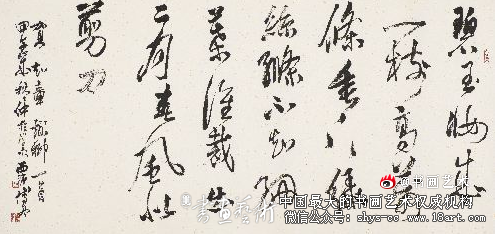 碧玉妝成
一樹高萬
條垂下綠
絲絛不知細
葉誰裁出
二月春風似
剪刀
賀知章詠柳一首
甲午
書畫藝術
书画艺术
中国最大的书画艺术权威机构
微信公众号: shys-cc www.18art.com